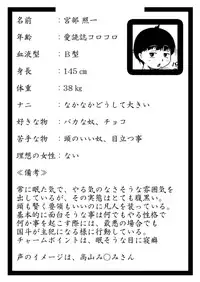 名前　：宮部 照一
年齢　：愛読誌コロコロ
血液型：Ｂ型
身長　：145㎝
体重　：38㎏
ナニ　：なかなかどうして大きい
好きな物：バカな奴、チョコ
苦手な物：頭のいい奴、目立つ事
理想の女性：ない
≪備考≫
常に眠た気で、やる気のなさそうな雰囲気を
出しているが、その実態はとても腹黒い。
頭も賢く要領もいいのに凡人を装っている。
基本的に面白そうな事は何でもやる性格で
何か事を起こす際には、最悪の場合でも
国斗が主犯になる様に行動している。
チャームポイントは、眠そうな目に寝癖
声のイメージは、高山み○みさん